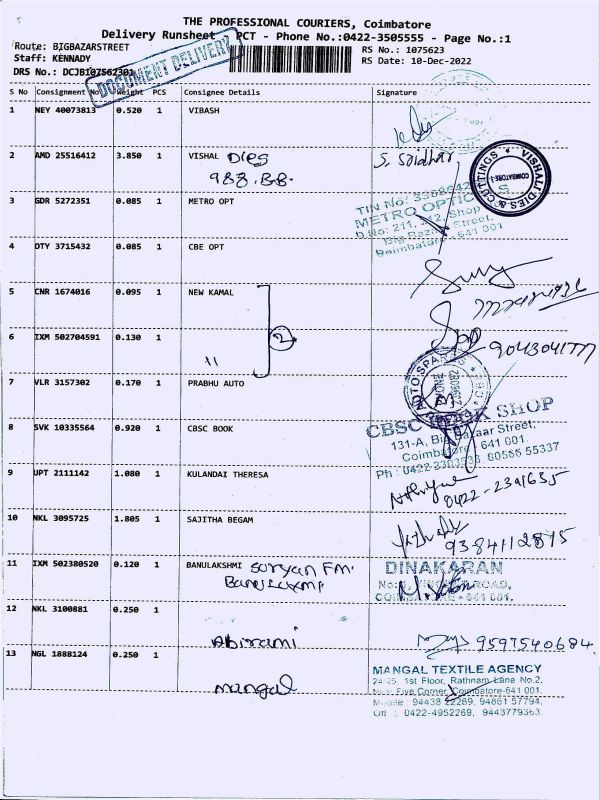 THE PROFESSIONAL COURIERS, Coimbatore
Delivery Runsheet - PCT - Phone No.:0422-3505555 - Page No.:1
Route: BIGBAZARSTREET
RS No.: 1075623
Staff: KENNADY
RS Date: 10-Dec-2022
DRS No.: DCJB107562301
DOCUMENT DELIVERY
S No Consignment No Weight PCS Consignee Details Signature
1 NEY 40073813 0.520 1 VIBASH
2 AMD 25516412 3.850 1 VISHAL Dies
S. Saidhar
988.B.B.
VISHALI DIES & CUTTINGS
COIMBATORE-1
3 GDR 5272351 0.085 1 METRO OPT
TIN No:
METRO OPTICALS
D.No: 211, 212, Shop
Big Bazaar Street,
Coimbatore - 641 001
4 DTY 3715432 0.085 1 CBE OPT
5 CNR 1674016 0.095 1 NEW KAMAL
2
6 IXM 502704591 0.130 1
11
9043041777
7 VLR 3157302 0.170 1 PRABHU AUTO
8 SVK 10335564 0.920 1 CBSC BOOK
CBSC BOOK SHOP
131-A, Big Bazaar Street,
Coimbatore 641 001.
9 UPT 2111142 1.080 1 KULANDAI THERESA
0422-2391635
10 NKL 3095725 1.805 1 SAJITHA BEGAM
9384112815
11 IXM 502380520 0.120 1 BANULAKSHMI Suryan FM.
Banulaxmi
DINAKARAN
COIMBATORE - 641 001.
12 NKL 3100881 0.250 1
Abirami
9597540684
13 NGL 1888124 0.250 1
Mangal
MANGAL TEXTILE AGENCY
24-25, 1st Floor, Rathnam Lane No.2,
Five Corner, Coimbatore-641 001.
Mobile : 94438 22269, 94861 57794,
Off : 0422-4952269, 9443779363.